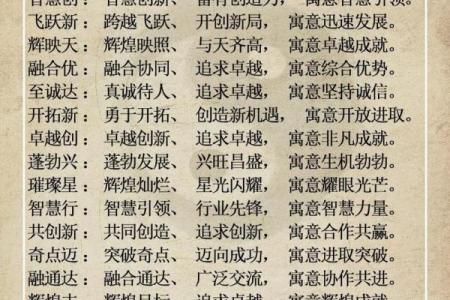 智慧创：智慧创新、富有创造力，寓意智慧引领。
飞跃新：跨越飞跃、开创新局，寓意迅速发展。
辉映天：辉煌映照、与天齐高，寓意卓越成就。
融合优：融合协同、追求卓越，寓意综合优势。
至诚达：真诚待人、追求卓越，寓意坚持诚信。
开拓新：勇于开拓、创造新机遇，寓意开放进取。
卓越创：卓越创新、追求卓越，寓意非凡成就。
蓬勃兴：蓬勃发展、兴旺昌盛，寓意生机勃勃。
璀璨星：辉煌灿烂、星光闪耀，寓意耀眼光芒。
智慧行：智慧引领、行业先锋，寓意智慧力量。
共创新：共同创造、追求创新，寓意合作共赢。
奇点迈：突破奇点、迈向成功，寓意进取突破。
融通达：融合通达、广泛交流，寓意协作共进。
辉煌志：辉煌目标、追求卓越，寓意辉煌成就。